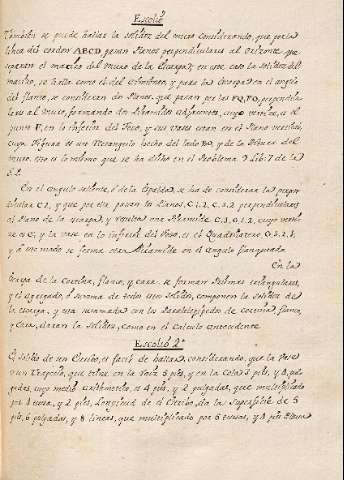 Escolio
Tambien se puede hallar la solidez del muro considerando, que por la
linea del cordon ABCD pasan Planos perpendiculares al Orizonte, que
separen el macizo del muro de la Escarpa; en este caso la solidez del
macizo, se halla como el del
del flanco, se consideran dos Planos, que pasan por las FQ, FO, perpendicu-
lares al muro, formando dos Piramides adjacentes, cuyo vertice, es el
punto F, en lo inferior del foso, y sus vases estan en el Plano vertical,
cuya figura es un Rectangulo hecho del lado y de la Altura del
muro, esto es lo mismo que se ha dicho en el Problema 9 Lib. 7 de la
En el angulo saliente, ó de la Espalda, se ha de considerar la perpen-
dicular C 1, y que por ella pasan dos Planos, C 1, 2, C, 3, 2 perpendiculares
al Plano de la escarpa, y resulta una Piramide C, 1, 0, 1, 2, cuyo vertice
es C, y la vase en lo inferior del foso, es el Quadrilatero 0, 2, 2, 1,
y á este modo se forma otra Piramide en el Angulo flanqueado.
En la
Escarpa de la Cortina, flanco, y cara, se forman Prismas triangulares,
y el agregado, ó suma de todos estos solidos, componen la solidez de
la escarpa, y esta sumada con los Paralelepipedos de cortina, flanco,
y cara, daran la solidez, como en el Calculo antecedente.
Escolio 2º
El solido de un Estribo, es facil de hallar, considerando, que la Vase
es un Trapecio, que tiene en la raiz 5 pies, y en la Cola 3 pies, y 4 pul-
gadas, cuyo medio arithmetico, es 4 pies, y 2 pulgadas, que multiplicado
por 1 tuesa, y 2 pies, longitud de el Estribo, da la Superficie de 5
pies, 6 pulgadas, y 8 lineas, que multiplicado por 5 tuesas, y 4 pies Altura